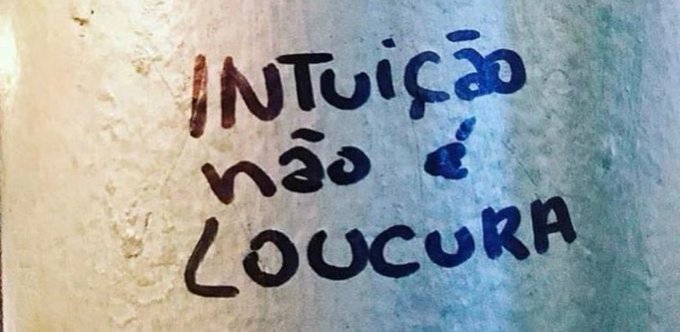 INTUIÇÃO
não é
LOUCURA